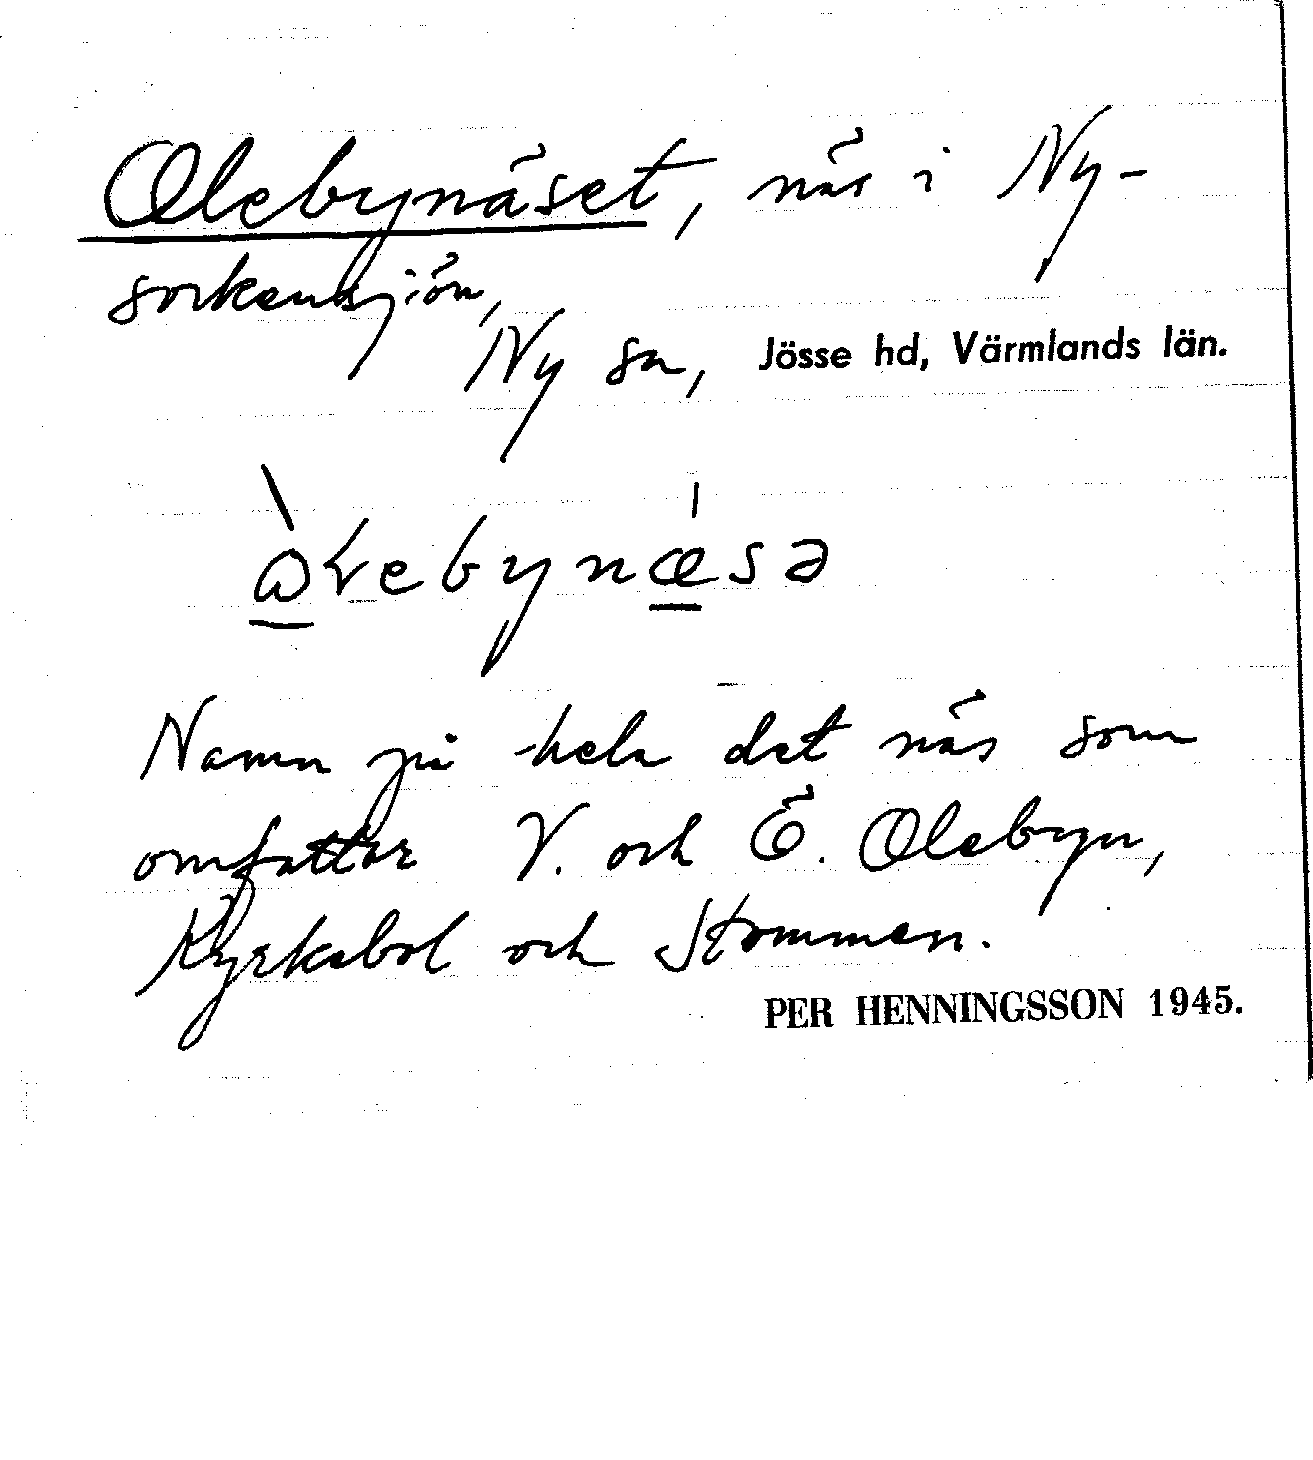 Olebynäset, näs i Ny-
sorkensjön,
Ny sn, Jösse hd, Värmlands län.
Namn på hela det näs som
omfattar V. och Ö. Olebyn,
Kyrkebol och Stommen.
PER HENNINGSSON 1945.